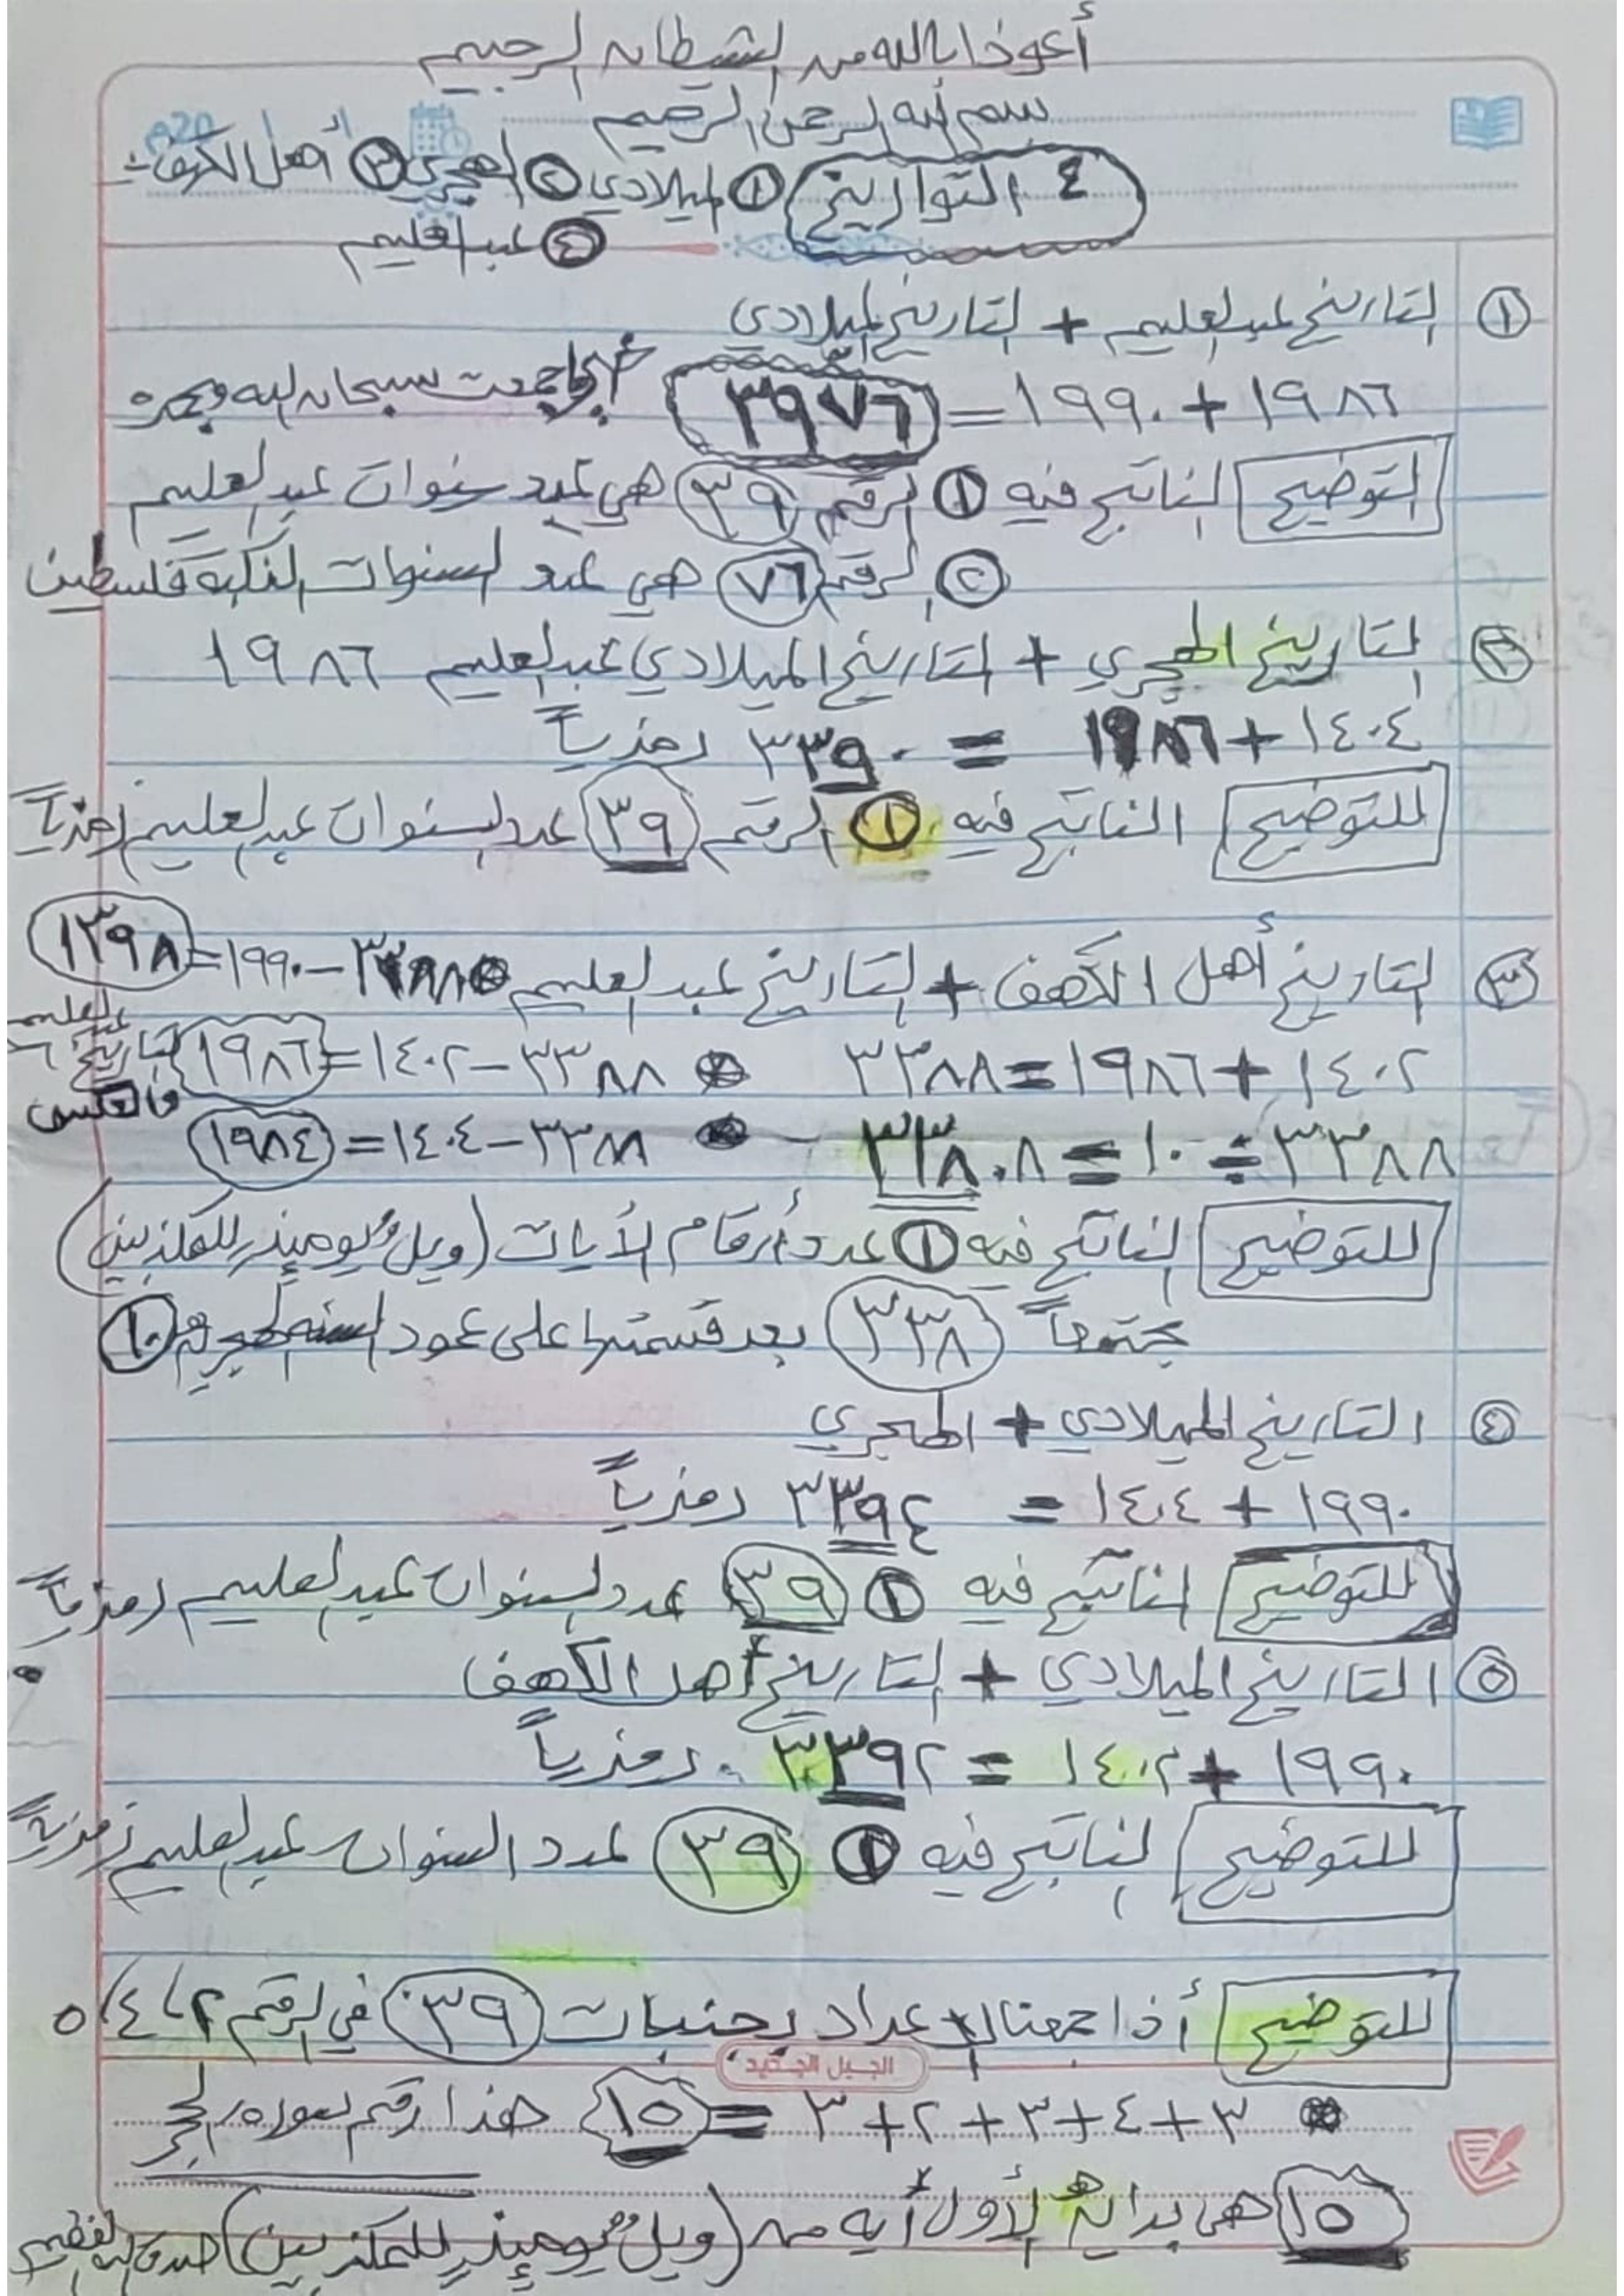 أعوذ بالله من الشيطان الرجيم
بسم الله الرحمن الرحيم
٤ التواريخ ١ الميلادي ٢ الهجري ٣ أهل الكهف
٤ عبدالعليم
١ التاريخ عبدالعليم + التاريخ الميلادي
١٩٨٦ + ١٩٩٠ = ٣٩٧٦ سبحان الله وبحمده
التوضيح الناتج فيه ١ الرقم ٣٩ هي عدد سنوات عبدالعليم
٢ الرقم ٧٦ هي عدد السنوات النكبة فلسطين
٢ التاريخ الهجري + التاريخ الميلادي عبدالعليم ١٩٨٦
١٤٠٤ + ١٩٨٦ = ٣٣٩٠ رمزياً
للتوضيح الناتج فيه ١ الرقم ٣٩ عدد السنوات عبدالعليم رمزياً
٣ التاريخ أهل الكهف + التاريخ عبدالعليم ٣٣٨٨ – ١٩٩٠ = ١٣٩٨
١٤٠٢ + ١٩٨٦ = ٣٣٨٨ ٣٣٨٨ – ١٤٠٢ = ١٩٨٦ تاريخ عبدالعليم
والعكس
٣٣٨٨ ÷ ١٠ = ٣٣٨.٨ ٣٣٨٨ – ١٤٠٤ = ١٩٨٤
للتوضيح الناتج فيه ١ عدد أرقام الأيات (ويل يومئذ للمكذبين)
مجتمعاً ٣٣٨ بعد قسمتها على عمود السنه الهجريه ١٠
٤ التاريخ الميلادي + الهجري
١٩٩٠ + ١٤٠٤ = ٣٣٩٤ رمزياً
للتوضيح الناتج فيه ١ ٣٩ عدد السنوات عبدالعليم رمزياً
٥ التاريخ الميلادي + التاريخ أهل الكهف
١٩٩٠ + ١٤٠٢ = ٣٣٩٢ رمزياً
للتوضيح الناتج فيه ١ ٣٩ عدد السنوات عبدالعليم رمزياً
للتوضيح أذا جمعنا الأعداد بجنبات ٣٩ في الرقم ٢، ٤، ٥
الجيل الجديد
٣ + ٤ + ٣ + ٢ + ٣ = ١٥ هذا رقم سوره الحجر
١٥ هي بداية الأول أيه من (ويل يومئذ للمكذبين) صدق الله العظيم